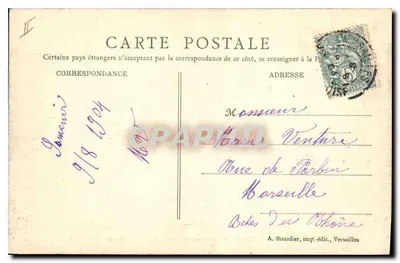 II
CARTE POSTALE
Certains pays étrangers n'acceptant pas la correspondance de ce côté, se renseigner à la
CORRESPONDANCE
ADRESSE
Souvenir
9/8 1904
Monsieur
Venturi
Rue de
Marseille
Bches du Rhône
A. Bourdier, imp.-édit., Versailles